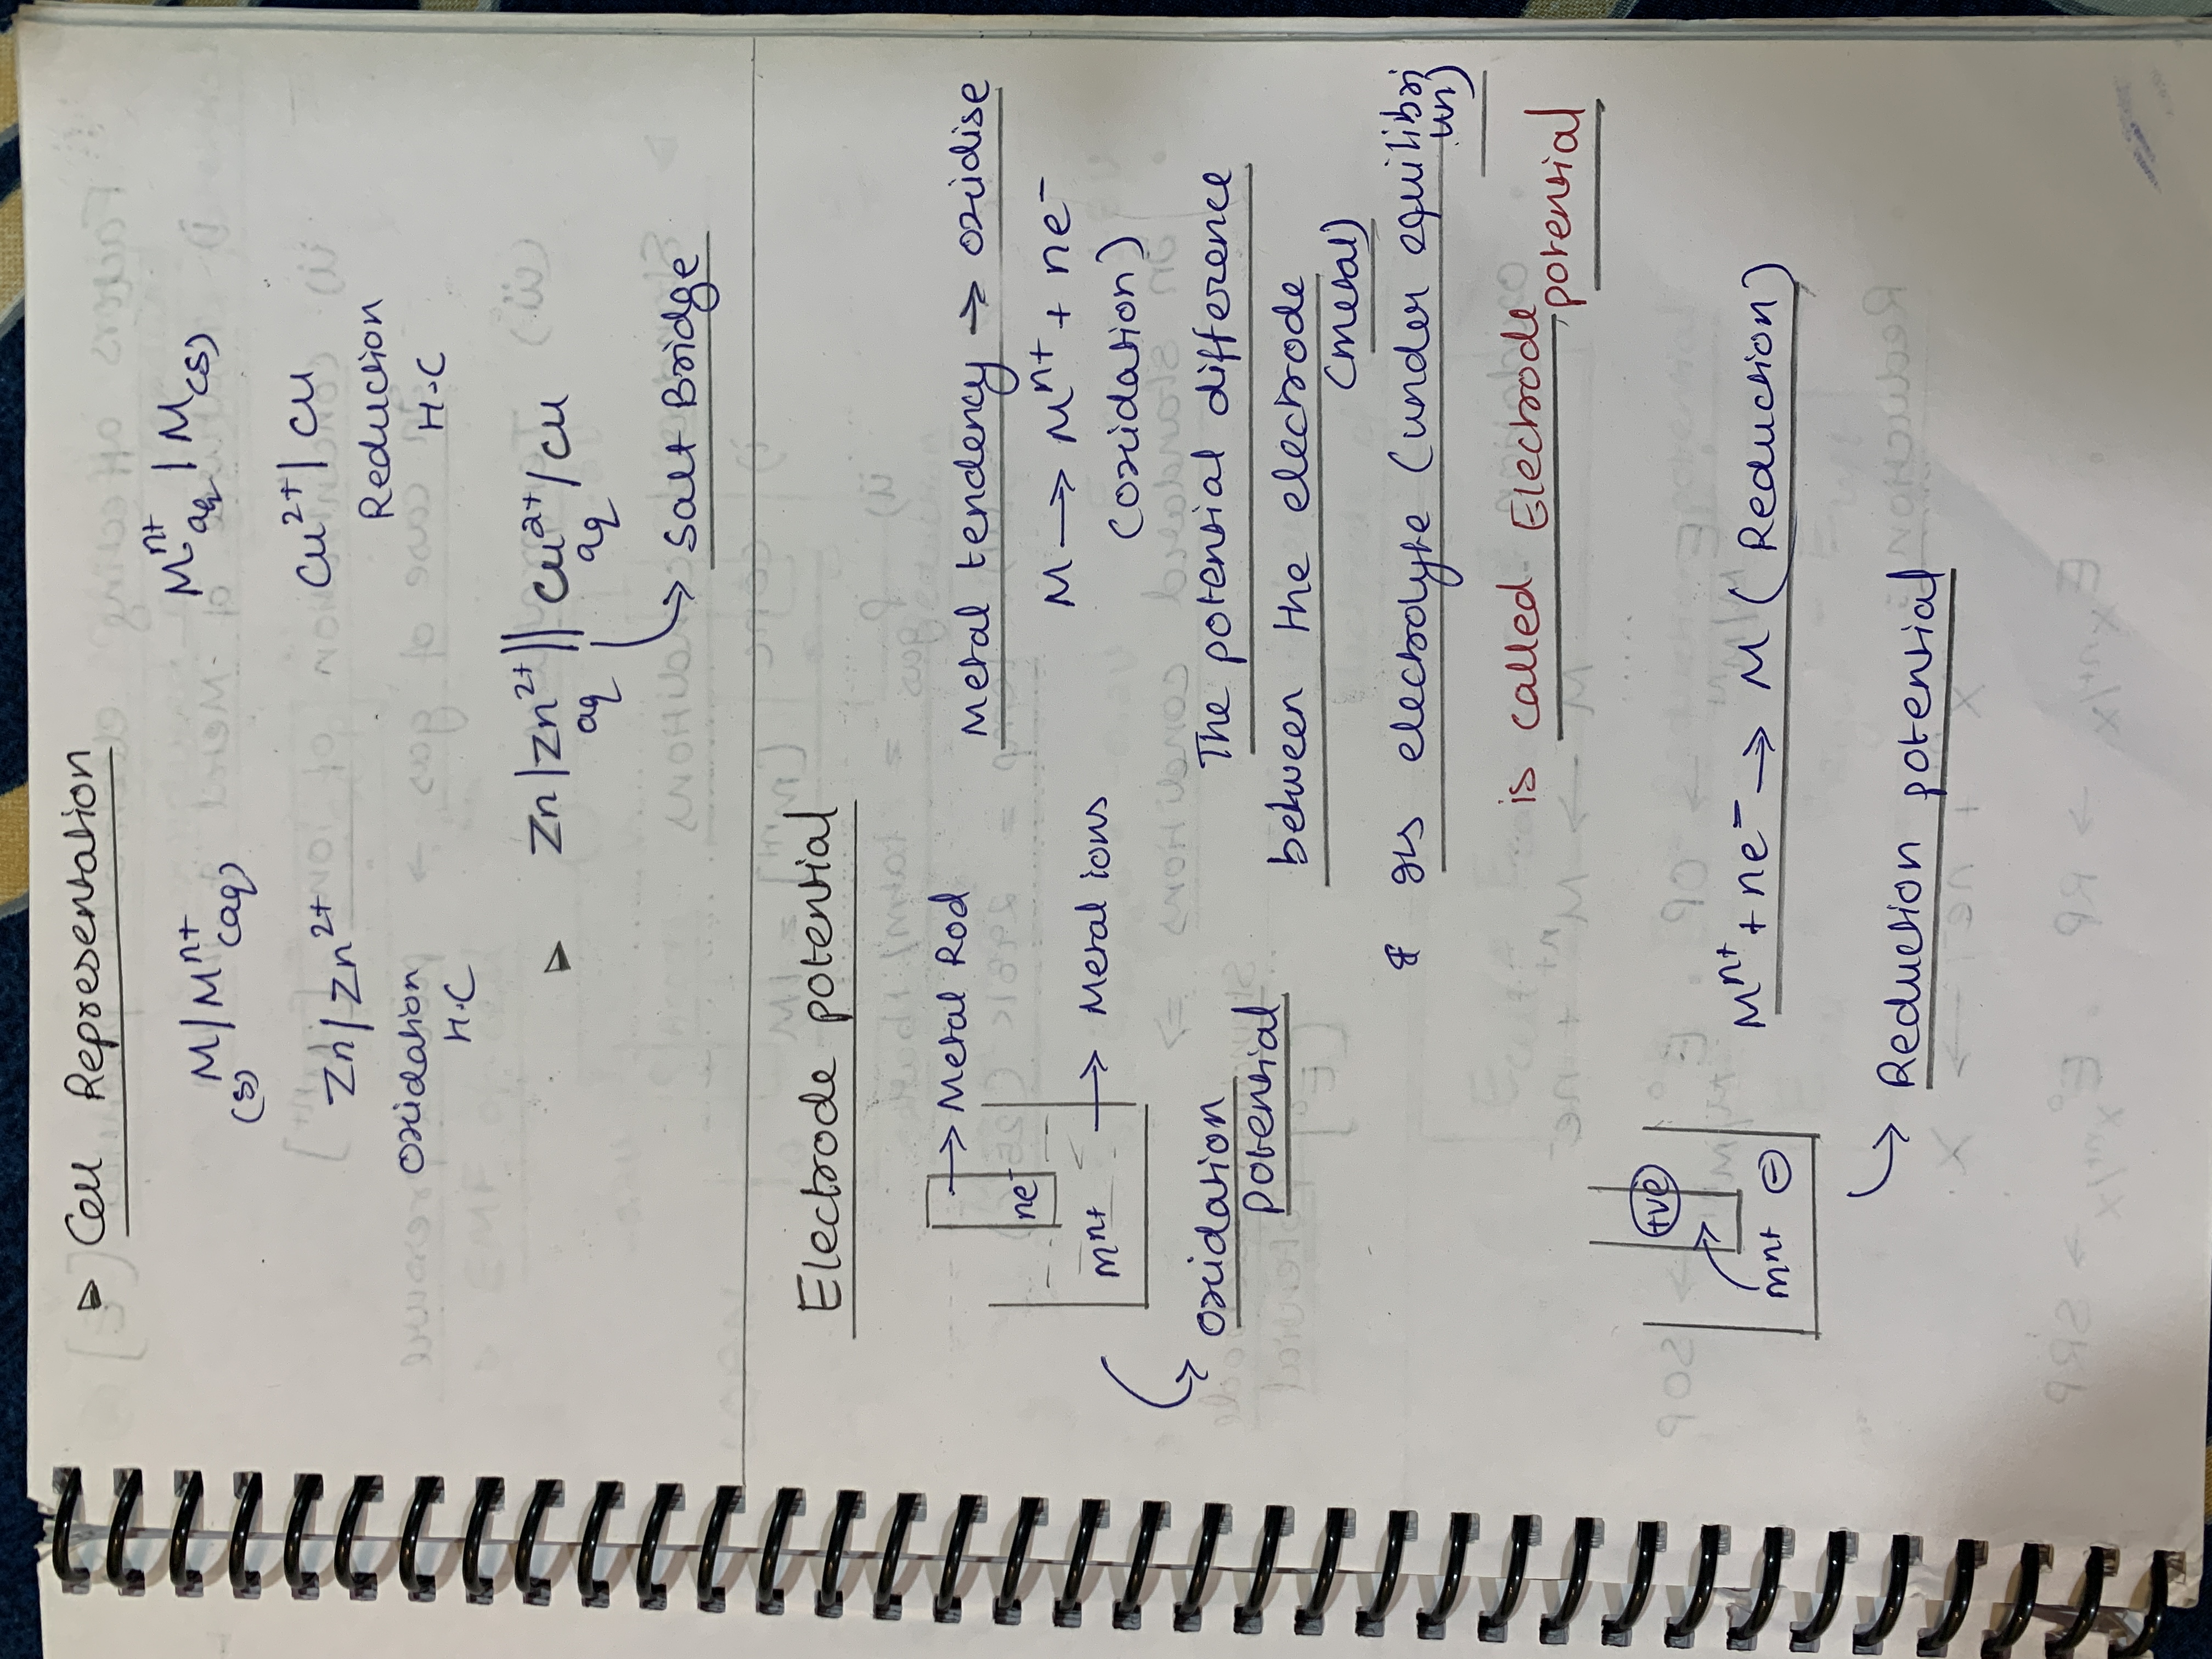 ▷ Cell Representation
M/Mⁿ⁺ (s) (aq)
Mⁿ⁺ aq | M(s)
Zn/Zn²⁺
Cu²⁺/Cu
Oxidation
H.C
Reduction
H.C
▷ Zn|Zn²⁺ aq || Cu²⁺ aq /Cu
→ Salt Bridge
Electrode potential
→ Metal Rod
ne⁻
Mⁿ⁺ → Metal ions
Oxidation
Potential
Metal tendency → oxidise
M → Mⁿ⁺ + ne⁻
(oxidation)
The potential difference
between the electrode
(metal)
& its electrolyte (under equilibri
um)
is called Electrode
potential
+ve
Mⁿ⁺ ⊖
Mⁿ⁺ + ne⁻ → M (Reduction)
→ Reduction potential